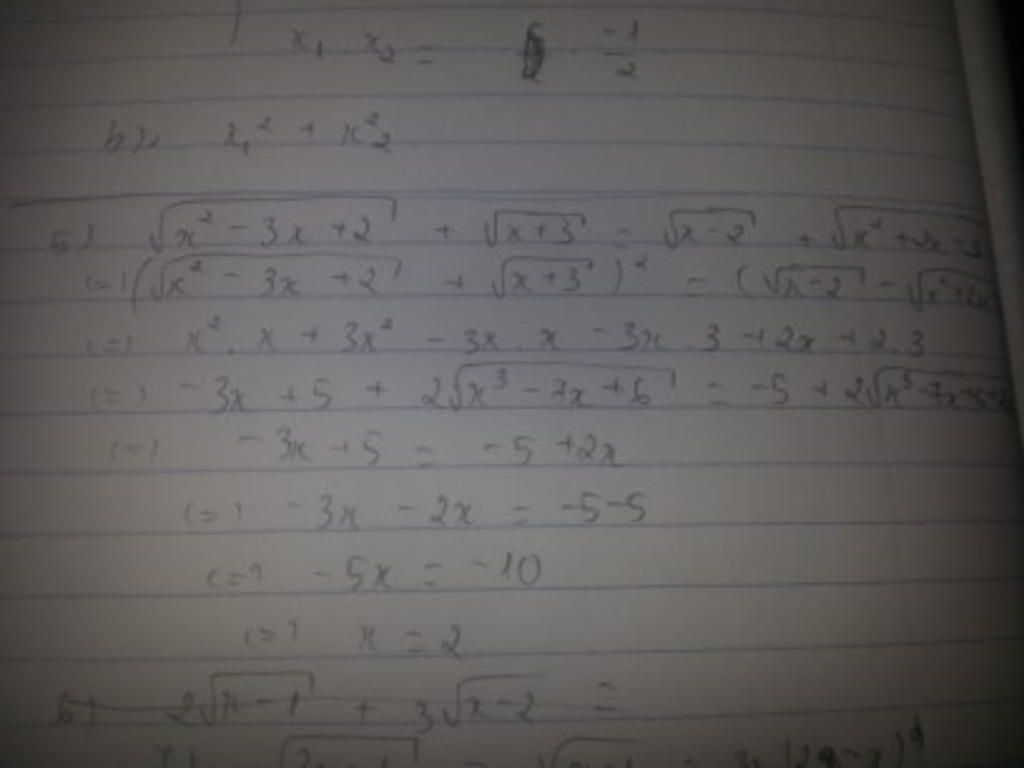 x₁ x₂ = · -1/2
b) x₁² + x₂²
5) √(x² - 3x + 2) + √(x+3) = √(x-2) + √(x² + 2x - 3)
<=> (√(x² - 3x + 2) + √(x+3))² = (√(x-2) - √(x² + 2x
<=> x² . x + 3x² - 3x . x - 3x . 3 + 2x + 2.3
<=> -3x + 5 + 2√(x³ - 7x + 6) = -5 + 2√(x³ - 7x
<=> -3x + 5 = -5 + 2x
<=> -3x - 2x = -5-5
<=> -5x = -10
<=> x = 2
2√(x-1) + 3√(x-2) =